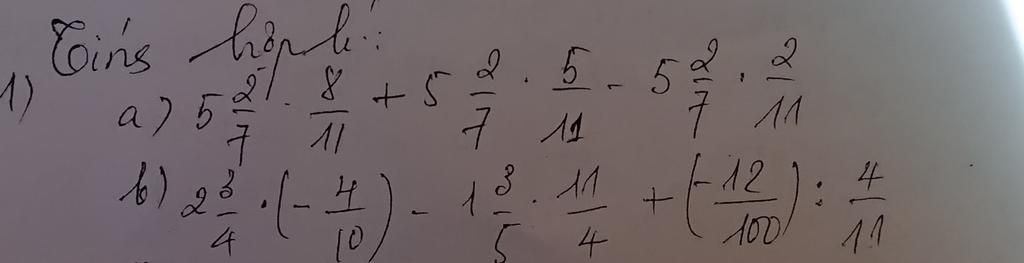 Tính hợp lí:
1) a) 5 2/7 · 8/11 + 5 2/7 · 5/11 - 5 2/7 · 2/11
b) 2 3/4 · (- 4/10) - 1 3/5 · 11/4 + (-12/100) : 4/11